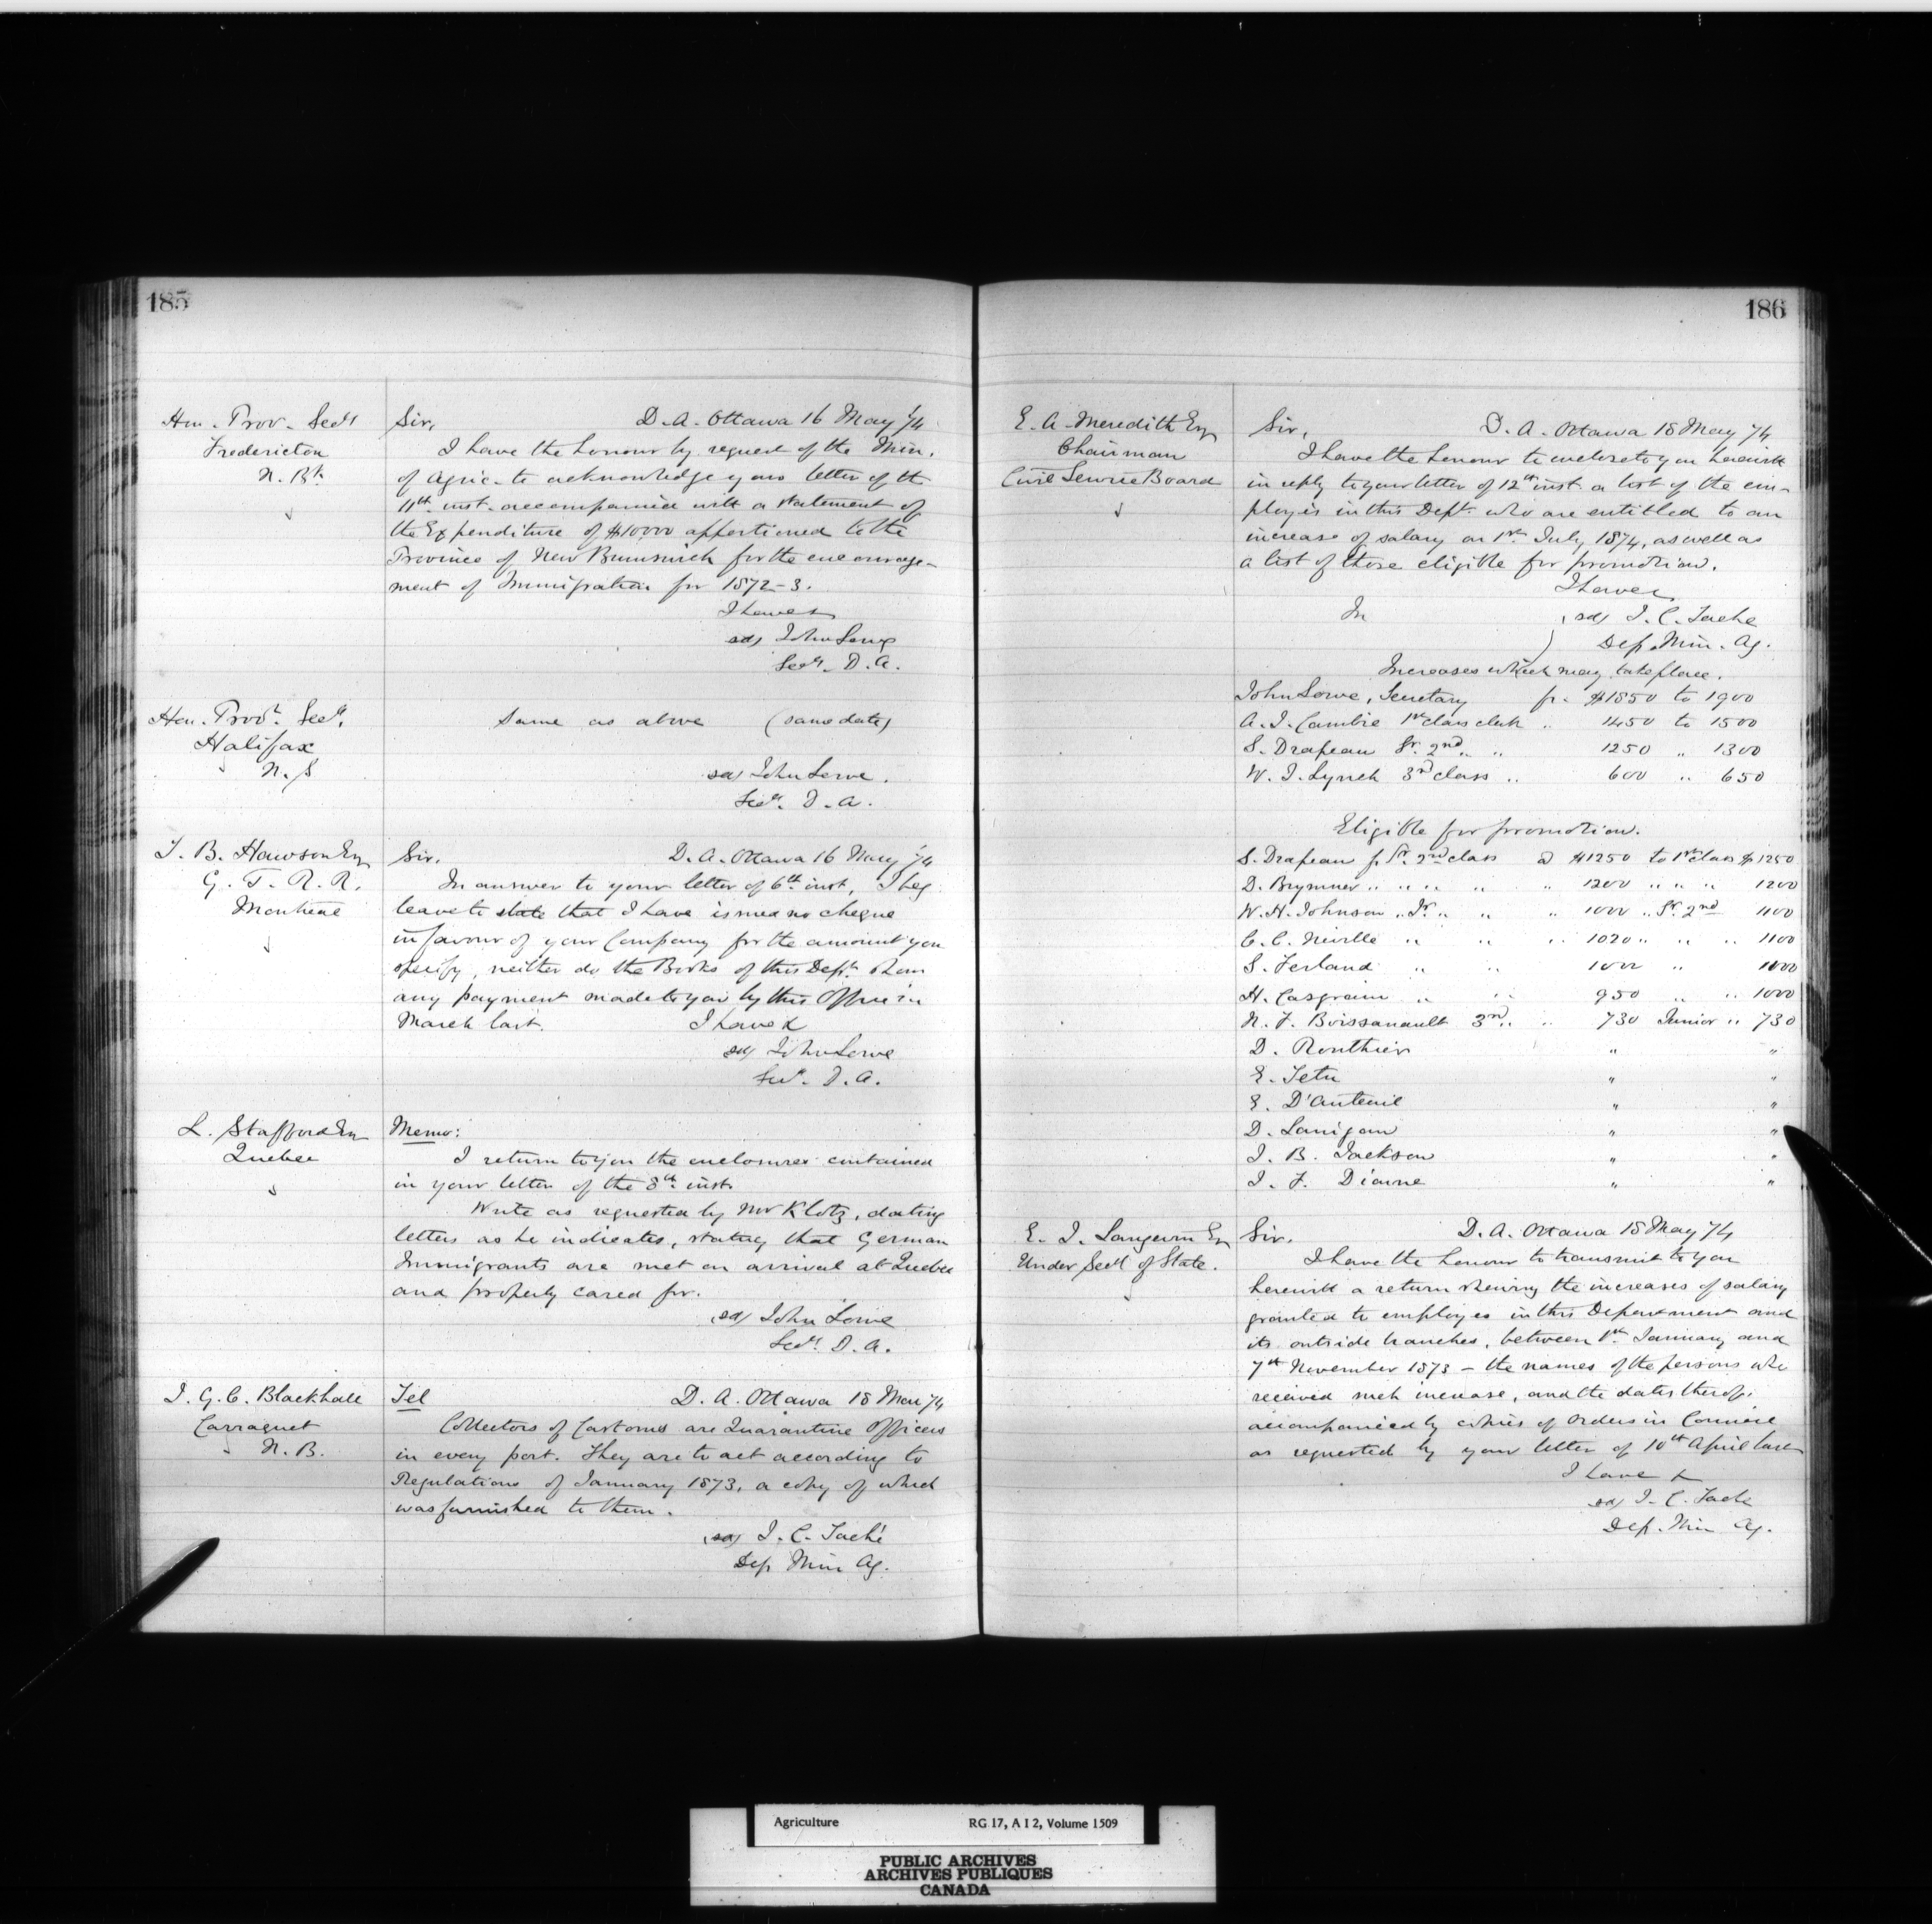 185
Hon. Prov. Secy
Fredericton
N. Bk
Sir, D. A. Ottawa 16 May /74
I have the honour by request of the Min.
of Agric. to acknowledge your letter of the
11th inst. accompanied with a statement of
the Expenditure of $10,000 apportioned to the
Province of New Brunswick for the encourage-
ment of Immigration for 1872-3.
I have &
sd/ John Lowe
Secy. D. A.
Hon. Provl. Secy.
Halifax
N. S
Same as above (same date)
sd/ John Lowe.
Secy. D. A.
J. B. Hawson Esq
G. T. R. R.
Montreal
Sir, D. A. Ottawa 16 May /74
In answer to your letter of 6th inst, I beg
leave to state that I have issued no cheque
in favour of your Company for the amount you
specify, neither do the Books of this Dept. show
any payment made to you by this Office in
March last. I have &
sd/ John Lowe
Secy. D. A.
L. Stafford Esq
Quebec
Memo:
I return to you the enclosures contained
in your letter of the 8th inst.
Write as requested by Mr Klotz, dating
letters as he indicates, stating that German
Immigrants are met on arrival at Quebec
and properly cared for.
sd/ John Lowe
Secy. D. A.
J. G. C. Blackhall
Carraquet
N. B.
Tel D. A. Ottawa 18 May /74
Collectors of Customs are Quarantine Officers
in every port. They are to act according to
Regulations of January 1873, a copy of which
was furnished to them.
sd/ J. C. Taché
Dep Min Ag.
186
E. A. Meredith Esq
Chairman
Civil Service Board
Sir, D. A. Ottawa 18 May /74
I have the honour to enclose to you herewith
in reply to your letter of 12th inst. a list of the em-
ployés in this Dept. who are entitled to an
increase of salary on 1st July 1874, as well as
a list of those eligible for promotion.
I have &
In sd/ J. C. Tache
Dep. Min. Ag.
Increases which may take place.
John Lowe, Secretary fr. $1850 to 1900
A. J. Cambie 1st class clerk " 1450 to 1500
S. Drapeau Sr. 2nd " " 1250 " 1300
W. J. Lynch 3rd class " 600 " 650
Eligible for promotion.
S. Drapeau f Sr. 2nd class @ $1250 to 1st class $1250
D. Brymner " " " " " 1200 " " " 1200
W. H. Johnson " Jr. " " " 1000 " Sr. 2nd 1100
C. C. Neville " " " 1020 " " " 1100
S. Ferland " " 1000 " 1000
H. Casgrain " " 950 " " 1000
N. F. Boissanault 3rd " " 730 Junior " 730
D. Routhier " "
E. Tetu " "
E. D'Auteuil " "
D. Lanigan " "
J. B. Jackson " "
J. F. Dionne " "
E. J. Langevin Esq
Under Secy of State.
Sir, D. A. Ottawa 18 May /74
I have the honour to transmit to you
herewith a return shewing the increases of salary
granted to employés in this Department and
its outside branches, between 1st January and
7th November 1873 - the names of the persons who
received such increase, and the dates thereof,
accompanied by copies of Orders in Council
as requested by your letter of 10th April last
I have &
sd/ J. C. Tache
Dep. Min Ag.
Agriculture RG 17, A I 2, Volume 1509
PUBLIC ARCHIVES
ARCHIVES PUBLIQUES
CANADA